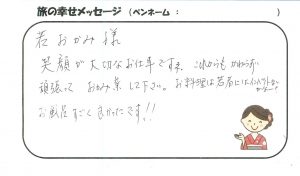 旅の幸せメッセージ（ペンネーム：　　　　　）
若おかみ様
笑顔が大切なお仕事ですネ これからもかわらず
頑張って おかみ業して下さい。お料理は若者には
お風呂すごく良かったです!!